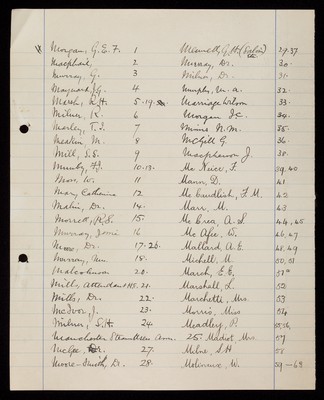 Morgan, G.E.F. 1
Macphail, 2
Murray, G. 3
Maynard, G. 4
Marsh, R.H. 5-19
Milner, K. 6
Morley, T.J. 7
Meakin, M. 8
Mill, S.S. 9
Mumby, F.J. 10.13.
Moss, W. 11
Mary Catherine 12
Malin, Dr. 14.
Morrell, R.S. 15.
Murray, Jamie 16
Moore, Dr. 17-26.
Murray, Ann 18.
Malcolmson 20.
Mills, Attendant HS. 21.
Mills, Dr. 22.
McIvor, J. 23.
Milner, S.H. 24.
Manchester Steamboat Ann. 25.
McGee, Dr. 27.
Moore-Smith, Dr. 28.
Mennell, G.H. 29.37
Murray, Dr. 30.
Milner, Dr. 31.
Murphy, W. A. 32.
Marriage Wilson 33.
Morgan Jc. 34.
Mims N.M. 35.
McGill G. 36.
Macpherson J. 38.
McNeice F. 39, 40
Mann, D. 41
McCrudlish, F.M. 42
Marr, M. 43
McCrea, A.S. 44, 45
McAfee, W. 46, 47
Mallard A.E. 48, 49
Michell. U. 50, 51
March, E.E. 51a
Marshall, L. 52
Marchetti, Mrs. 53
Morris, Miss 54
Meadley, P. 55, 56,
Madiot Mrs 57
Milne, S.H 58
Molineux, W. 59-69